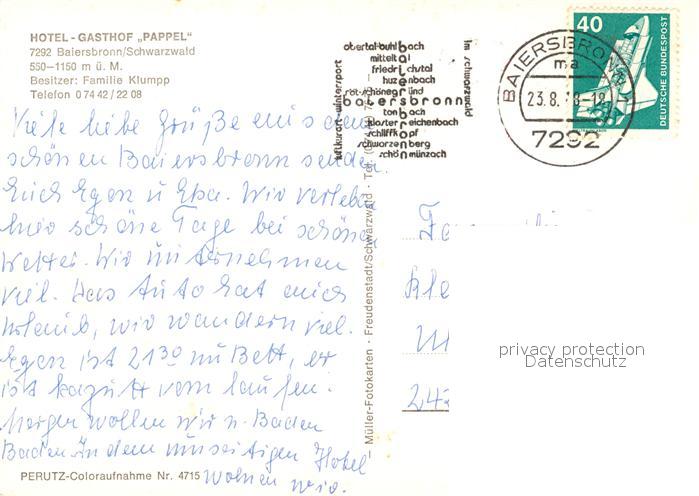 HOTEL - GASTHOF „PAPPEL"
7292 Baiersbronn/Schwarzwald
550-1150 m ü. M.
Besitzer: Familie Klumpp
Telefon 0 74 42 / 22 08
Viele liebe Grüße aus dem
schönen Baiersbronn senden
Euch Egon u Elsa. Wir verleben
hier schöne Tage bei schönem
Wetter. Wir unternehmen
viel. Das Auto hat auch
Urlaub, wir wandern viel.
Egon ist 21³⁰ im Bett, er
ist kaputt vom laufen.
Morgen wollen wir n. Baden
Baden. In dem umseitigen Hotel
wohnen wir.
PERUTZ-Coloraufnahme Nr. 4715
Müller-Fotokarten · Freudenstadt/Schwarzwald · Tel.
luftkurort-wintersport
obertal-buhlbach
mitteltal
friedrichstal
huzenbach
röt-schönegründ
baiersbronn
tonbach
klosterreichenbach
schliffkopf
schwarzenberg
schönmünzach
im schwarzwald
BAIERSBRONN 1
ma
23.8.
7292
40
DEUTSCHE BUNDESPOST
privacy protection
Datenschutz